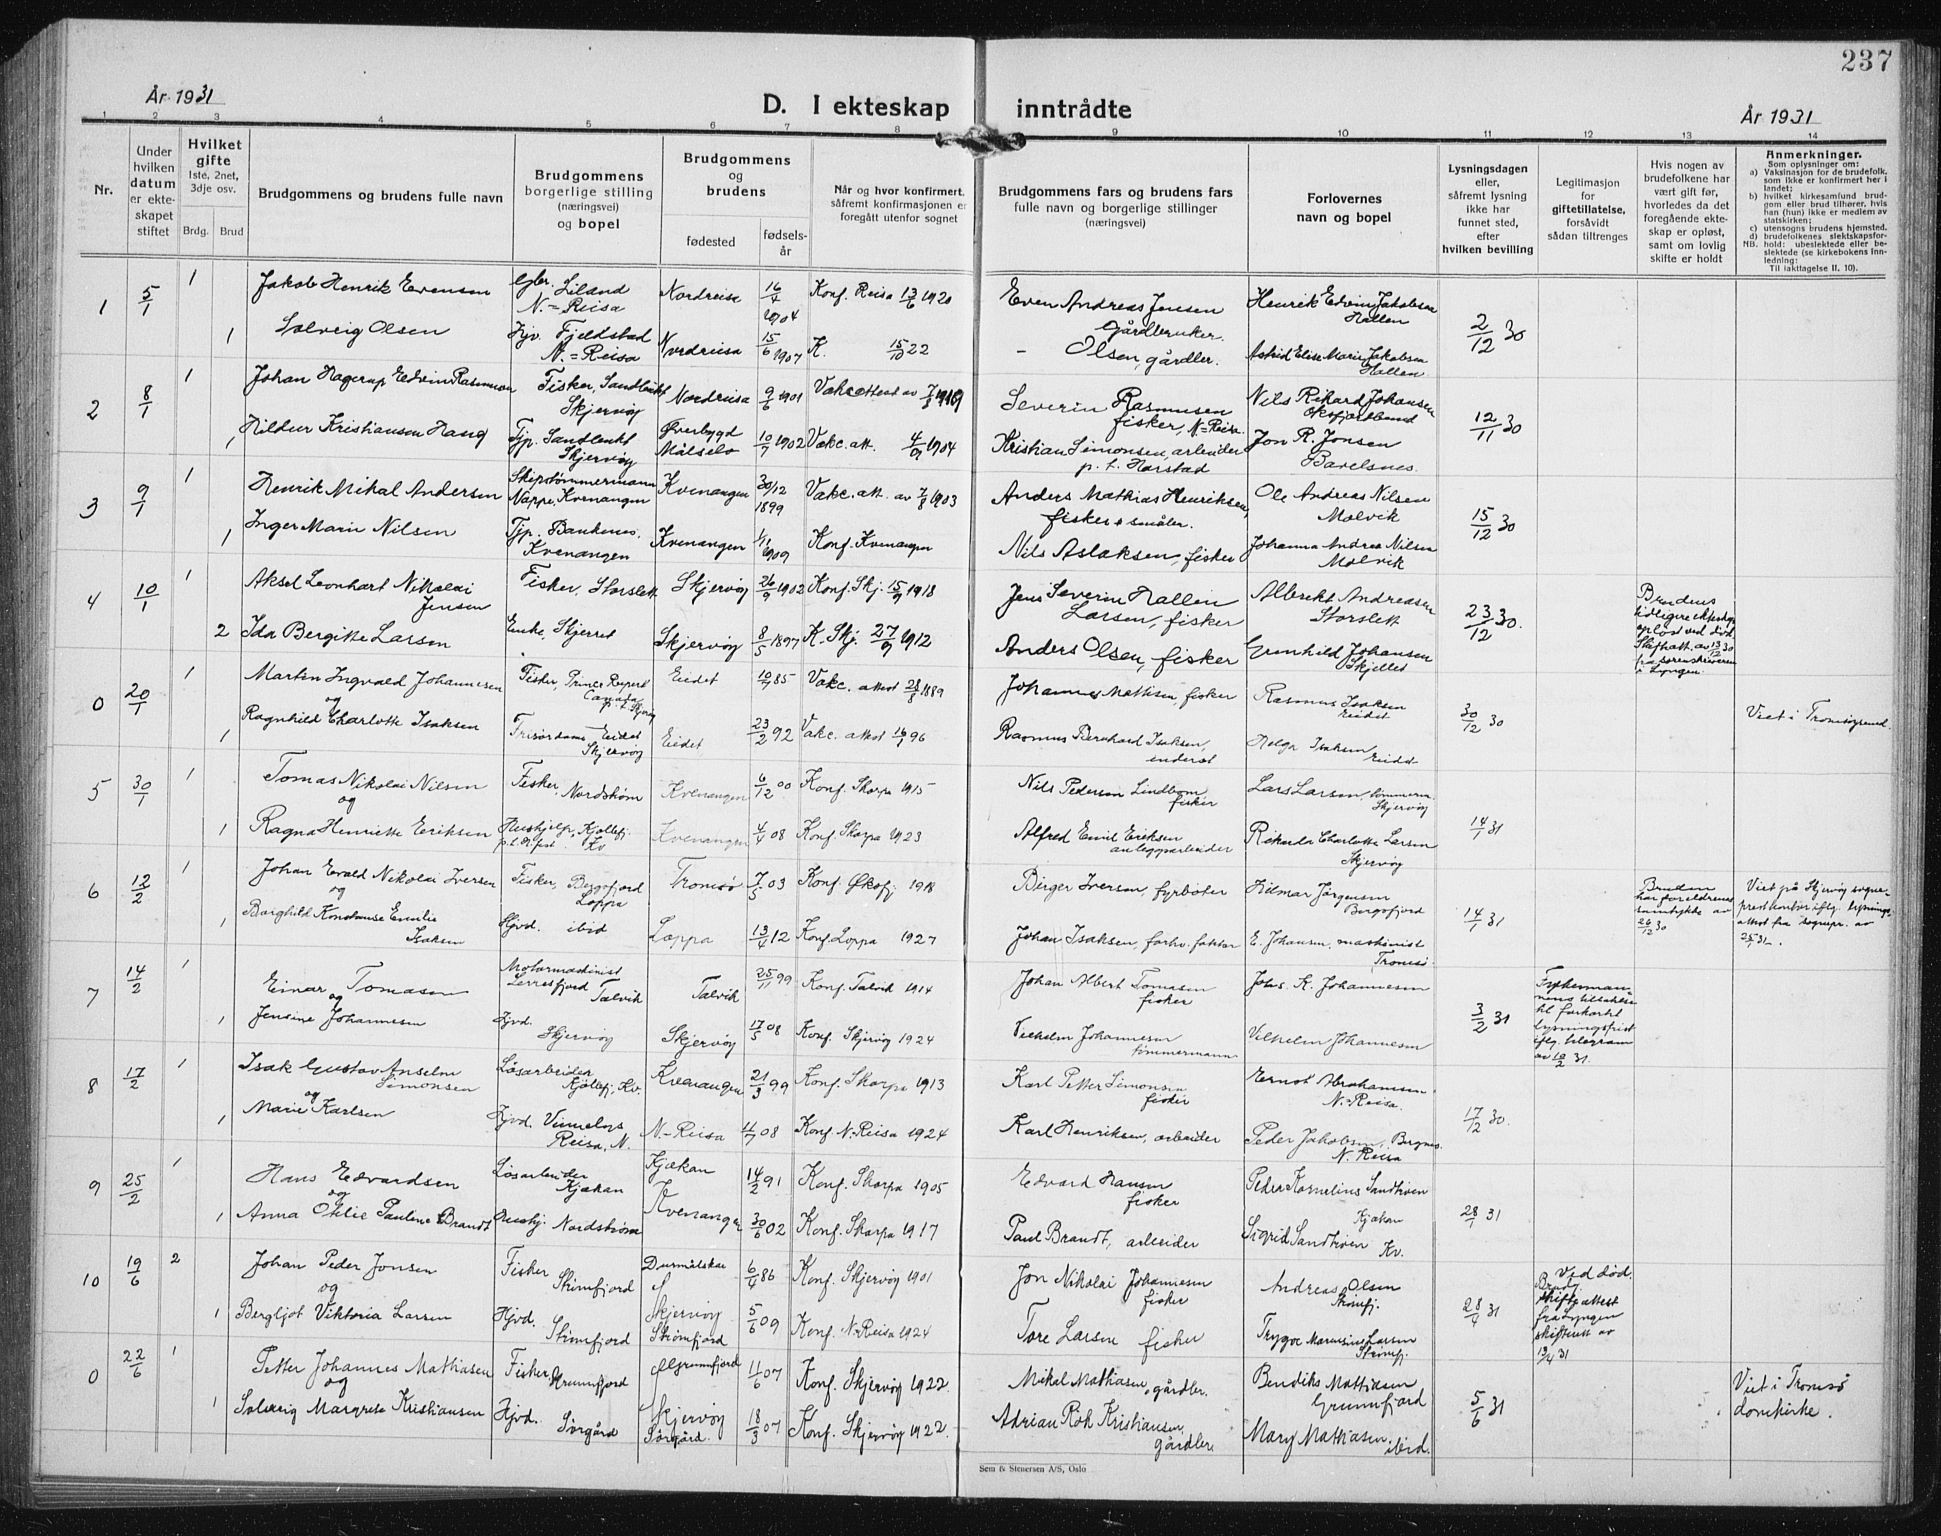 237
År 1931
D. I ekteskap inntrådte
År 1931
1 2 3 4 5 6 7 8 9 10 11 12 13 14
Nr.
Under hvilken datum er ekteskapet stiftet
Hvilket gifte 1ste, 2net, 3dje osv.
Brdg. Brud
Brudgommens og brudens fulle navn
Brudgommens borgerlige stilling (næringsvei) og bopel
Brudgommens og brudens
fødested
fødsels-år
Når og hvor konfirmert, såfremt konfirmasjonen er foregått utenfor sognet
Brudgommens fars og brudens fars fulle navn og borgerlige stillinger (næringsvei)
Forlovernes navn og bopel
Lysningsdagen eller, såfremt lysning ikke har funnet sted, efter hvilken bevilling
Legitimasjon for giftetillatelse, forsåvidt sådan tiltrenges
Hvis nogen av brudefolkene har vært gift før, hvorledes da det foregående ekteskap er opløst, samt om lovlig skifte er holdt
Anmerkninger.
Som oplysninger om:
a) Vaksinasjon for de brudefolk, som ikke er konfirmert her i landet;
b) hvilket kirkesamfund brudgom eller brud tilhører, hvis han (hun) ikke er medlem av statskirken;
c) utensogns brudens hjemsted.
d) brudefolkenes slektskapsforhold: ubeslektede eller beslektede (se kirkebokens innledning:
NB.
Til iakttagelse II, 10).
1 5/1 1 Jakob Henrik Evensen Gbr. Liland N.=Reisa Nordreisa 16/4 1904 Konf. Reisa 13/6 1920 Even Andreas Jensen Gårdbruker. Henrik Edvin Jakobsen Hallen 2/12 30
1 Solveig Olsen Hjv. Fjeldstad N.=Reisa Nordreisa 15/6 1907 K. 15/10 22 - Olsen, gårdbr. Astrid Elise Marie Jakobsen Hallen
2 8/1 1 Johan Hagerup Edvin Rasmussen Fisker, Sandbukt Skjervøy Nordreisa 9/6 1901 Severin Rasmusen fisker, N=Reisa. Nils Rikard Johansen Oksfjordbund 12/11 30
1 Hildur Kristiansen Haug Tjp. Sandbukt Skjervøy Øverbygd Målselv 10/7 1902 Vakc. att. 4/9 1904 Kristian Simonsen, arbeider p.t. Harstad Jon R. Jonsen Bavelsnes
3 9/1 1 Henrik Mikal Andersen Skipstømmermann Nappe, Kvenangen Kvenangen 30/12 1899 Vakc. att. av 7/8 1903 Anders Mathias Henriksen, fisker o småbr. Ole Andreas Nilsen Molvik 15/12 30
1 Inger Marie Nilsen Tjp. Bankenes, Kvenangen Kvenangen 1/11 1909 Konf. Kvenangen Nils Aslaksen, fisker Johanna Andrea Nilsen Molvik
4 10/1 1 Aksel Leonhart Nikolai Jensen Fisker, Storslett Skjervøy 26/9 1902 Konf. Skj. 15/9 1918 Jens Severin Hallin Larsen, fisker Albrekt Andreasen Storslett 23/12 30.
2 Ida Bergitte Larsen Enke, Skjerret Skjervøy 8/5 1897 K. Skj. 27/9 1912 Anders Olsen, fisker Gunhild Johansen Skjellet
Brudens tidligere ekteskap opløst ved død. Skifteatt. av 13/12 30 fra sorenskriveren i Lyngen.
0 20/1 1 Martin Ingvald Johannesen og Fisker, Prince Rupert Canada p.t. Skjervøy Eidet 10/7 85 Vakc. attest 28/8 1889 Johannes Mattisen, fisker Rasmus Isaksen Eidet 30/12 30 Viet i Tromsøysund.
1 Ragnhild Charlotte Isaksen Eidet Skjervøy Eidet 23/2 92 Vakc. attest 16/9 96 Rasmus Bernhard Isaksen, Helga Isaksen Eidet
5 30/1 1 Tomas Nikolai Nilsen og Fisker, Nordstrøm Kvenangen 6/12 00 Konf. Skorpa 1915 Nils Pederson Lindbom, fisker Lars Larsen, tømmerm. Skjervøy 14/1 31
1 Ragna Henriette Eriksen Hushjelp, Kjøllefj. Kv Kvenangen 4/4 08 Konf. Skorpa 1923 Alfred Emil Eriksen anleggsarbeider Rikarda Charlotte Larsen Skjervøy
6 12/2 1 Johan Evald Nikolai Iversen og Fisker, Bergsfjord Loppa Tromsø 7/5 03 Konf. Øksfj 1918 Birger Iversen, fyrbøter Hilmar Jørgensen Bergsfjord 14/1 31
1 Borghild Konstanse Emilie Isaksen Hjvd. ibid Loppa 13/4 12 Konf. Loppa 1927 Johan Isaksen, forhv. faktor E. Johansen, maskinist Tromsø.
Bruden har foreldrenes samtykke av 26/12 30
Viet på Skjervøy sogneprestkontor iflg. lysningsattest fra sognepr. av 25/1 31.
7 14/2 1 Einar Tomasen og Motormaskinist Lerresfjord Talvik Talvik 25/11 99 Konf. Talvik 1914 Johan Albert Tomasen fisker Johs. K. Johannesen 3/2 31
1 Jensine Johannesen Hjvd. Skjervøy Skjervøy 17/5 08 Konf. Skjervøy 1924 Vilhelm Johannesen tømmermann Vilhelm Johannesen
Fylkesmannens tillatelse til forkortet lysningsfrist iflg. telegram av 10/2 31.
8 17/2 1 Isak Gustav Anselm Simonsen og Løsarbeider Kjøllefj. Kv. Kvenangen 21/3 99 Konf. Skorpa 1913 Karl Petter Simonsen fisker Ernst Abrahamsen. N.=Reisa. 17/12 30.
1 Marie Karlsen Hjvd. Vinnelys Reisa, N. N.-Reisa 11/7 08 Konf. N.-Reisa 1924 Karl Henriksen, arbeider Peder Jakobsen, Bergnes. N. Reisa
9 25/2 1 Hans Edvardsen og Løsarbeider Kjækan Kjækan 14/2 91 Konf. Skorpa 1905 Edvard Hansen fisker Peder Kornelius Sandtrøen Kjækan 28/1 31
1 Anna Otilie Pauline Brandt Hushj. Nordstrøm Kvenangen 30/6 02 Konf. Skorpa 1917 Paul Brandt, arbeider Sigrid Sandtrøen Kv.
10 19/6 2 Johan Peder Jonsen og Fisker Straumfjord Durmålskar 6/4 86 Konf. Skjervøy 1901 Jon Nikolai Johannesen fisker Andreas Olsen 28/4 31
1 Bergljot Viktoria Larsen Hjvd. Straumfjord Skjervøy Strømfjord 5/6 09 Konf. N-Reisa 1924 Tore Larsen fisker Trygve Marensius Larsen
Ved død. skifteattest fra Lyngen skifterett av 13/4 31
0 22/6 1 Petter Johannes Mathiasen og Fisker, Grunnfjord Grunnfjord 11/6 07 Konf. Skjervøy 1922. Mikal Mathiasen, gårdbr. Bendiks Mathiasen Grunnfjord 5/6 31 Viet i Tromsø domkirke.
1 Solveig Margrete Kristiansen Hjvd. Sørgård Skjervøy Sørgård. 18/3 07 Konf. Skjervøy 1922. Adrian Rob. Kristiansen, gårdbr. Mary Mathiasen, ibid.
Sem & Stenersen A/S, Oslo